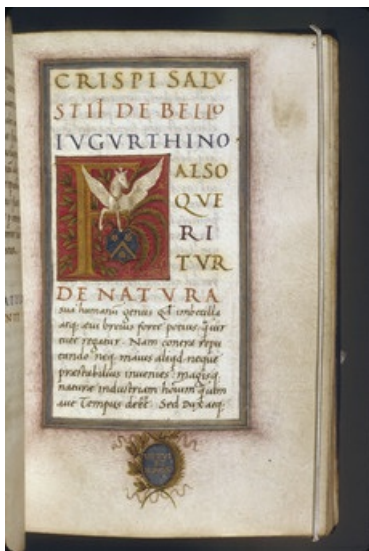 CRISPI SALV
STII DE BELLO
IVGVRTHINO
F ALSO
QVE
RI
TVR
DE NATVRA
sua humanum genus qd imbecilla
atq; aeui breuis forte potius quā uir
tute regatur. Nam contra repu
tando neq; maius aliqd neque
praestabilius inuenies magisq;
naturae industriam hominū quā uim
aut Tempus deēē. Sed Dux atq;